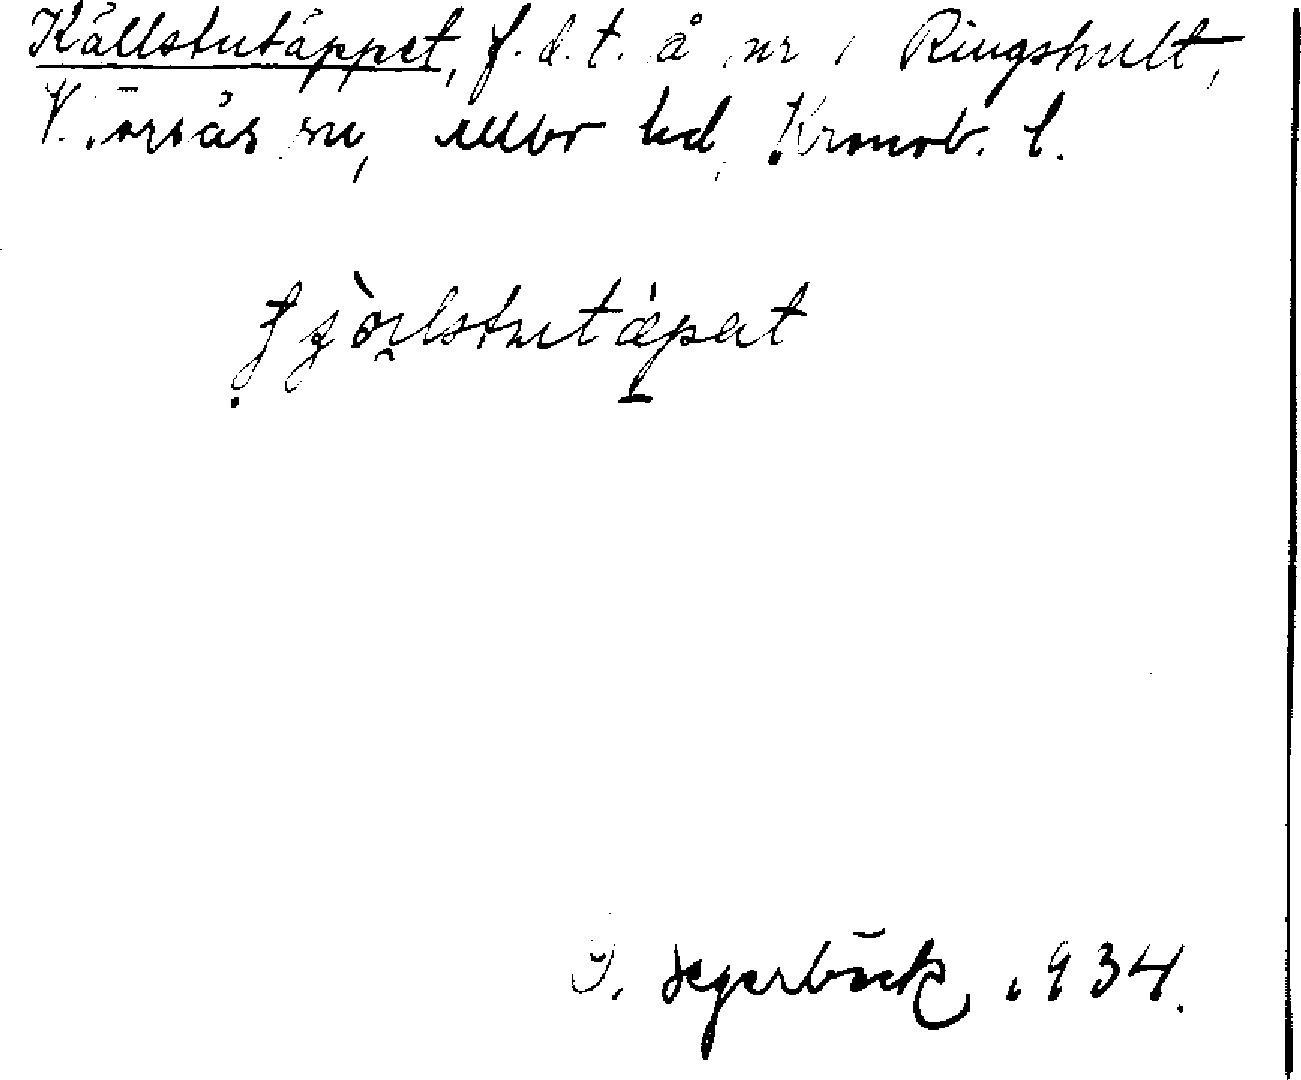 Källstutäppet, f.d.t. å nr 1 Ringshult,
V. Torsås sn, Allbo hd, Kronob. l.
J. Segerbäck 1934.